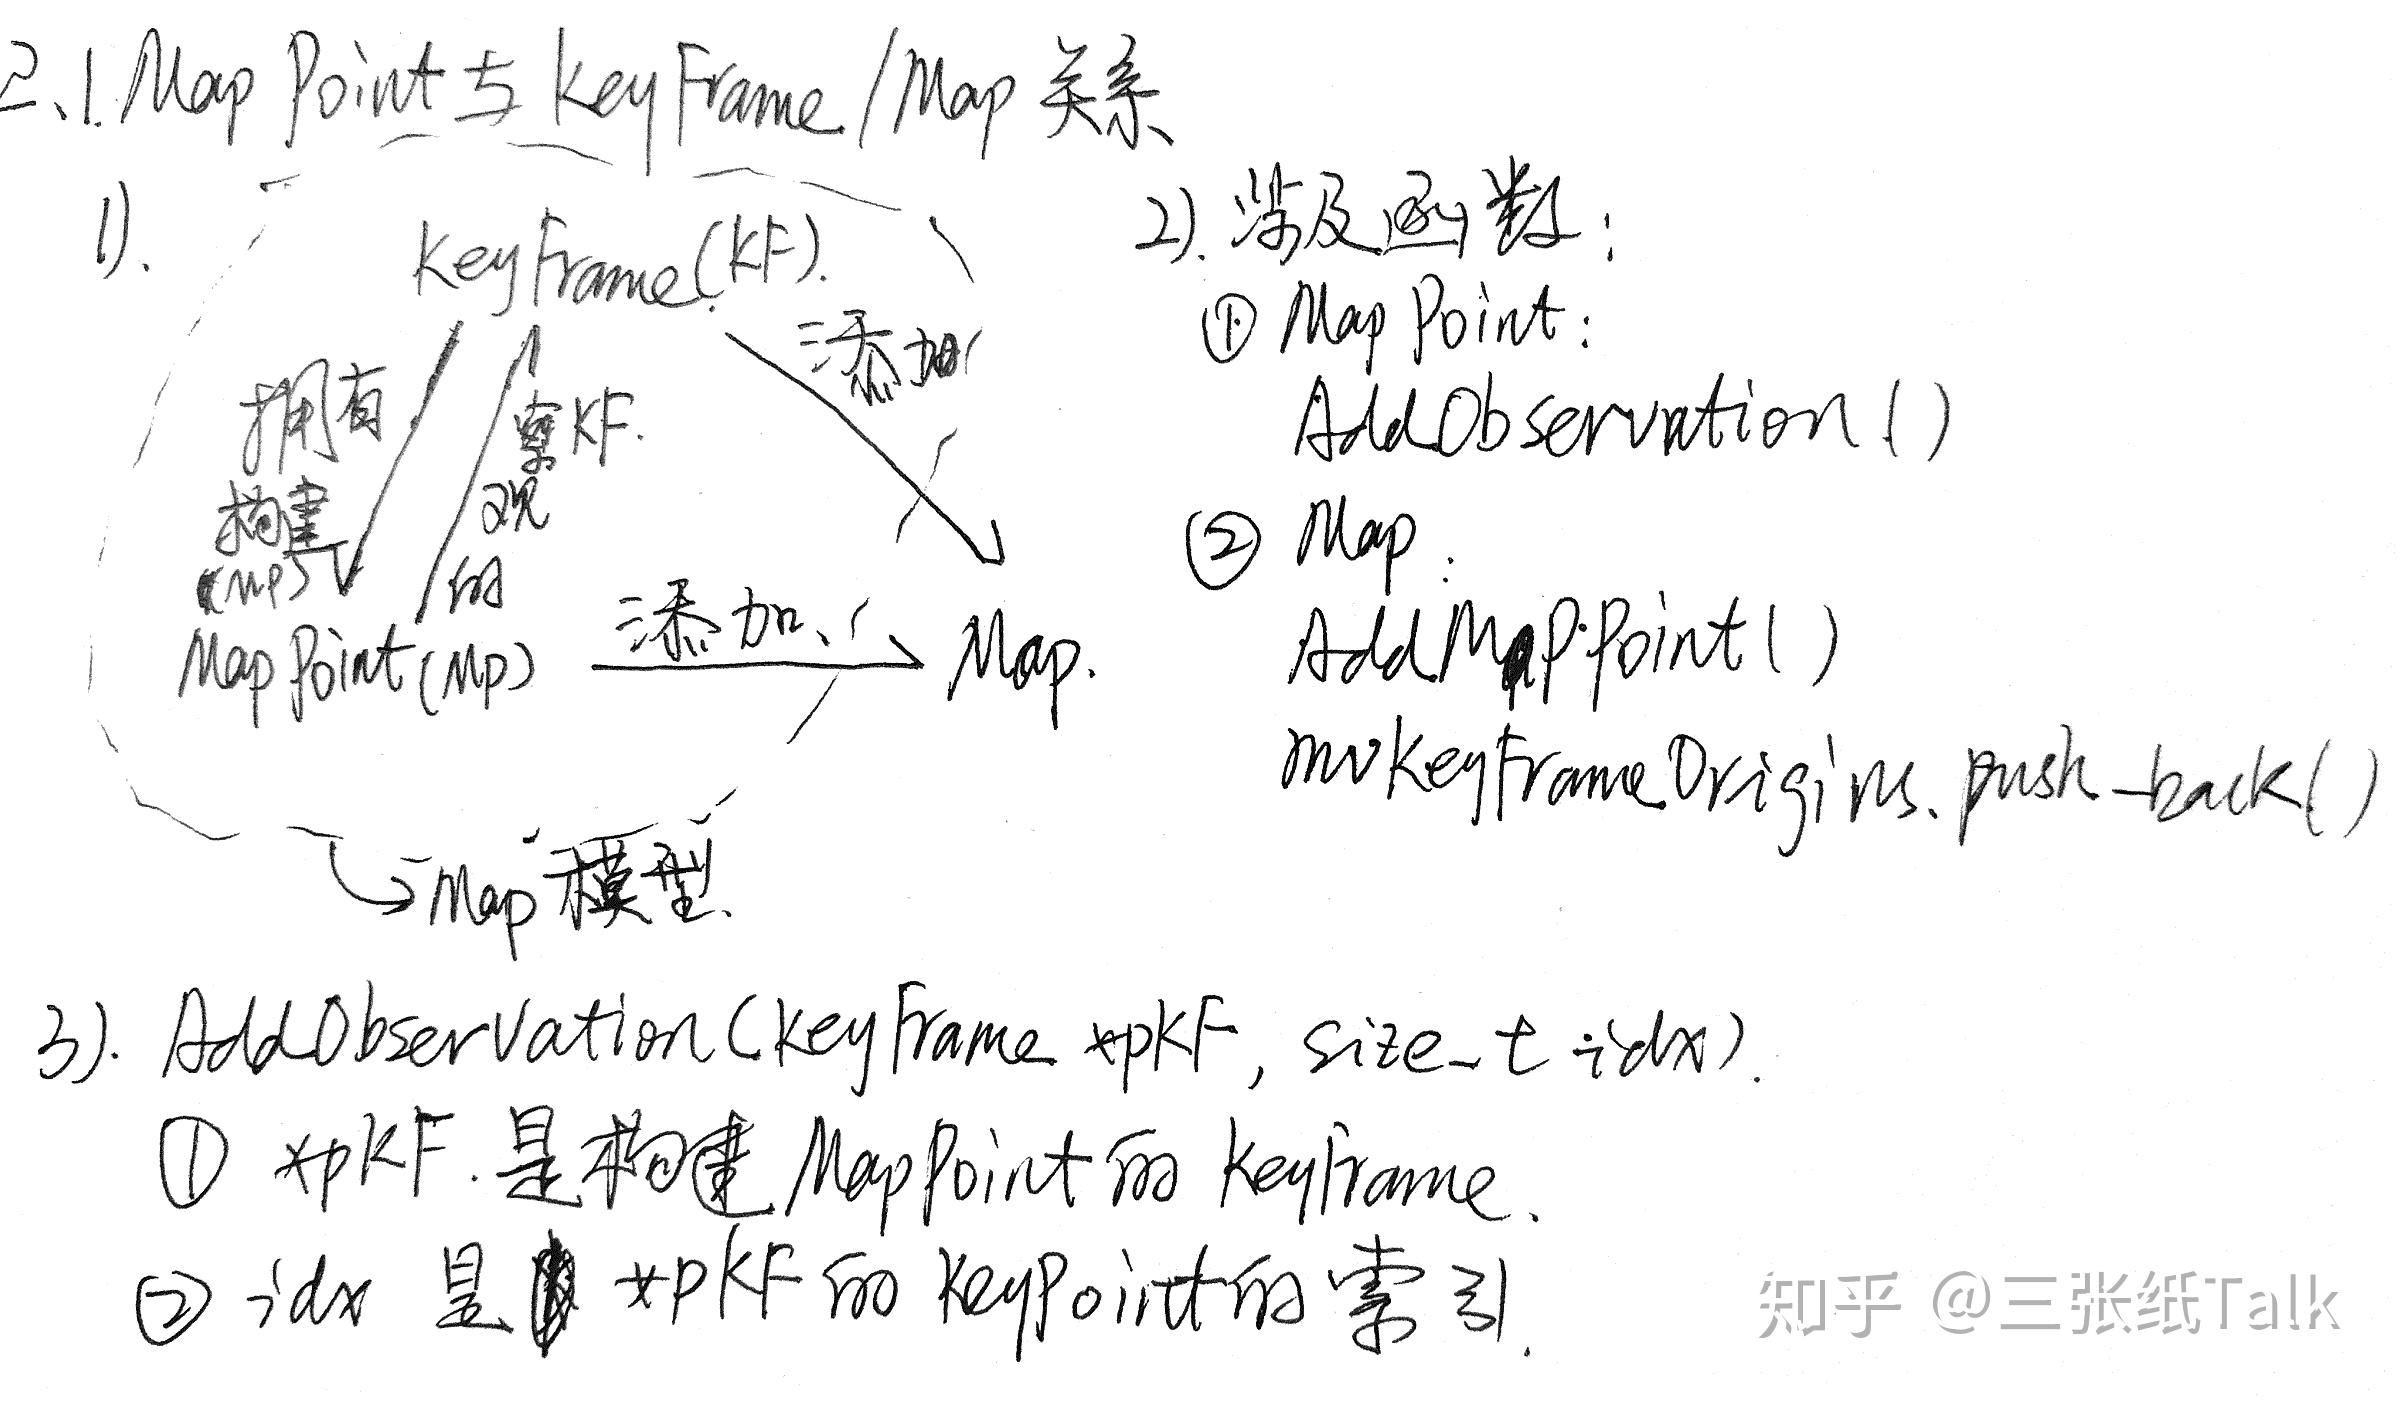 二、1. MapPoint与KeyFrame/Map关系
1).
KeyFrame(KF).
添加
拥有
构建
(MP)
索KF.
观
的
MapPoint(MP)
添加、
Map.
Map模型.
2).涉及函数:
① MapPoint:
AddObservation()
② Map:
AddMapPoint()
mvKeyFrameOrigins.push_back()
3). AddObservation(KeyFrame *pKF, size_t idx).
① *pKF.是构建MapPoint的KeyFrame.
② idx 是 *pKF的KeyPoint的索引.
知乎 @三张纸Talk